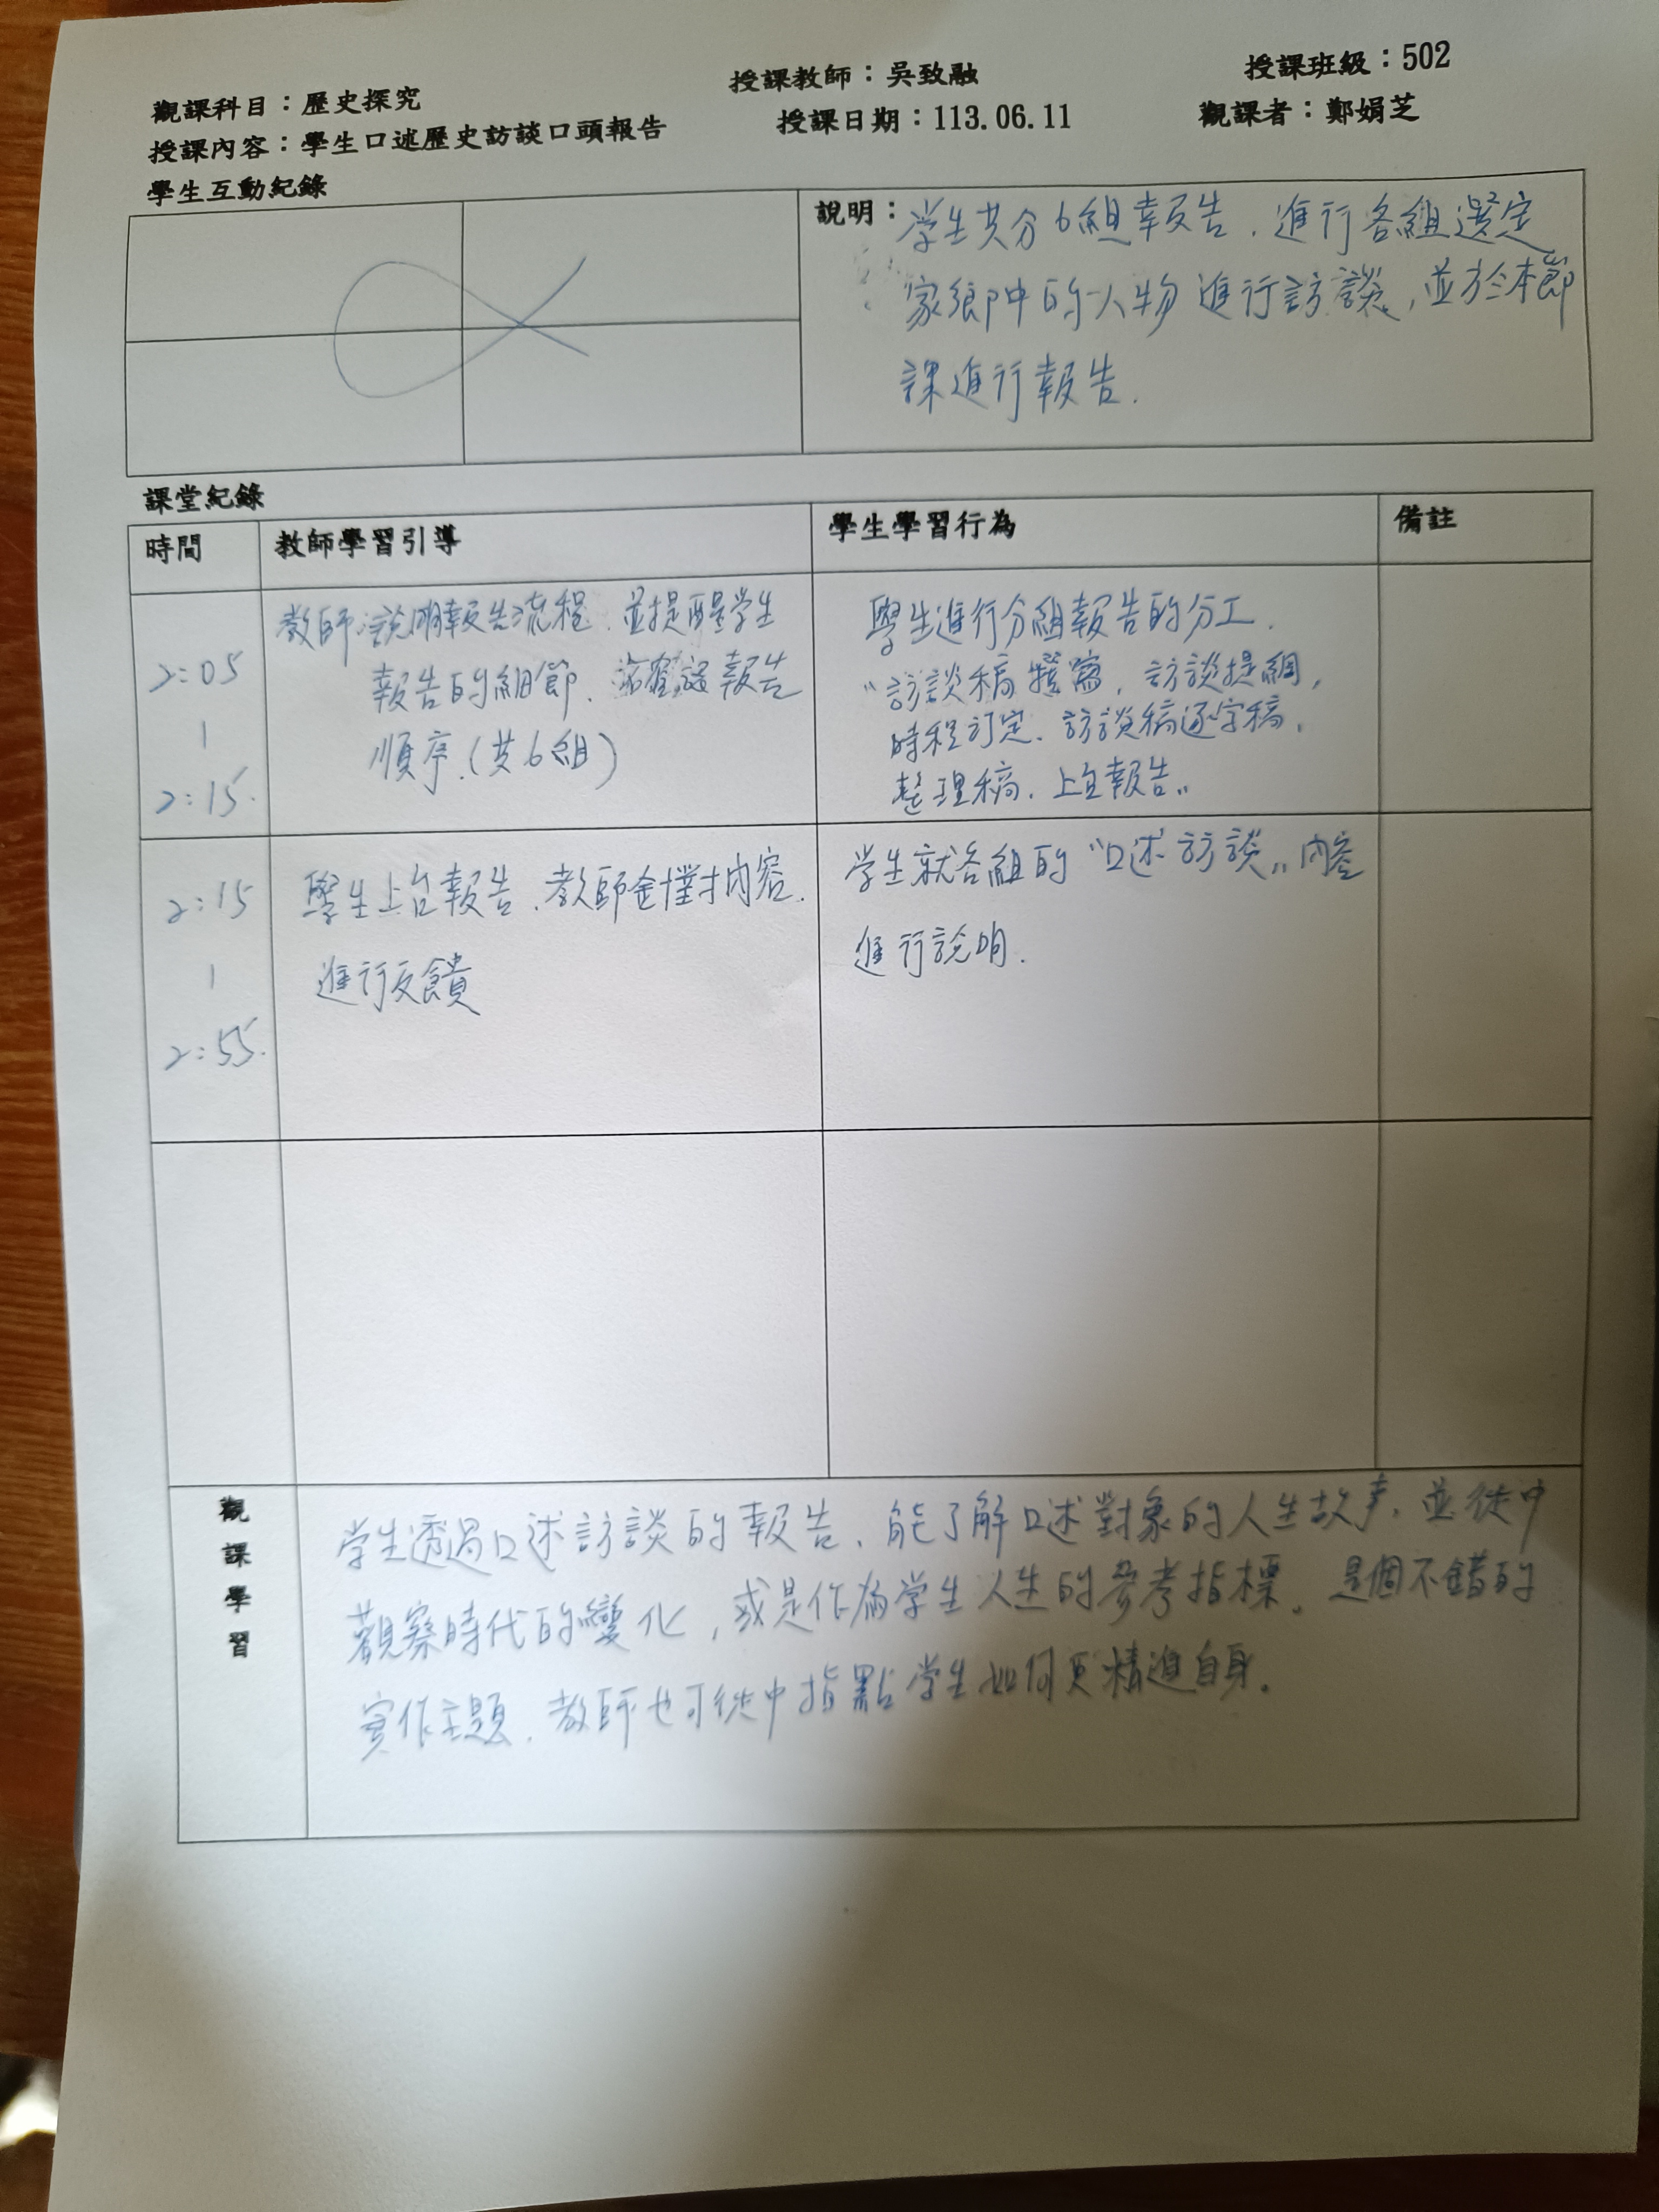 觀課科目：歷史探究 授課教師：吳致融 授課班級：502
授課內容：學生口述歷史訪談口頭報告 授課日期：113.06.11 觀課者：鄭娟芝
學生互動紀錄
說明：学生共分6組報告，進行各組選定
家鄉中的人物進行訪談，並於本節
課進行報告.
課堂紀錄
時間 教師學習引導 學生學習行為 備註
2:05
|
2:15.
教師說明報告流程、並提醒学生
報告的細節、確認報告
順序.(共6組)
學生進行分組報告的分工.
"訪談稿撰寫、訪談提綱,
時程訂定、訪談稿逐字稿、
整理稿、上台報告"
2:15
|
2:55.
學生上台報告、教師針對內容.
進行反饋
学生就各組的"口述訪談"內容
進行說明.
觀課學習
学生透過口述訪談的報告、能了解口述對象的人生故事、並從中
觀察時代的變化，或是作為学生人生的參考指標。是個不錯的
實作主題、教師也可從中指點学生如何更精進自身。